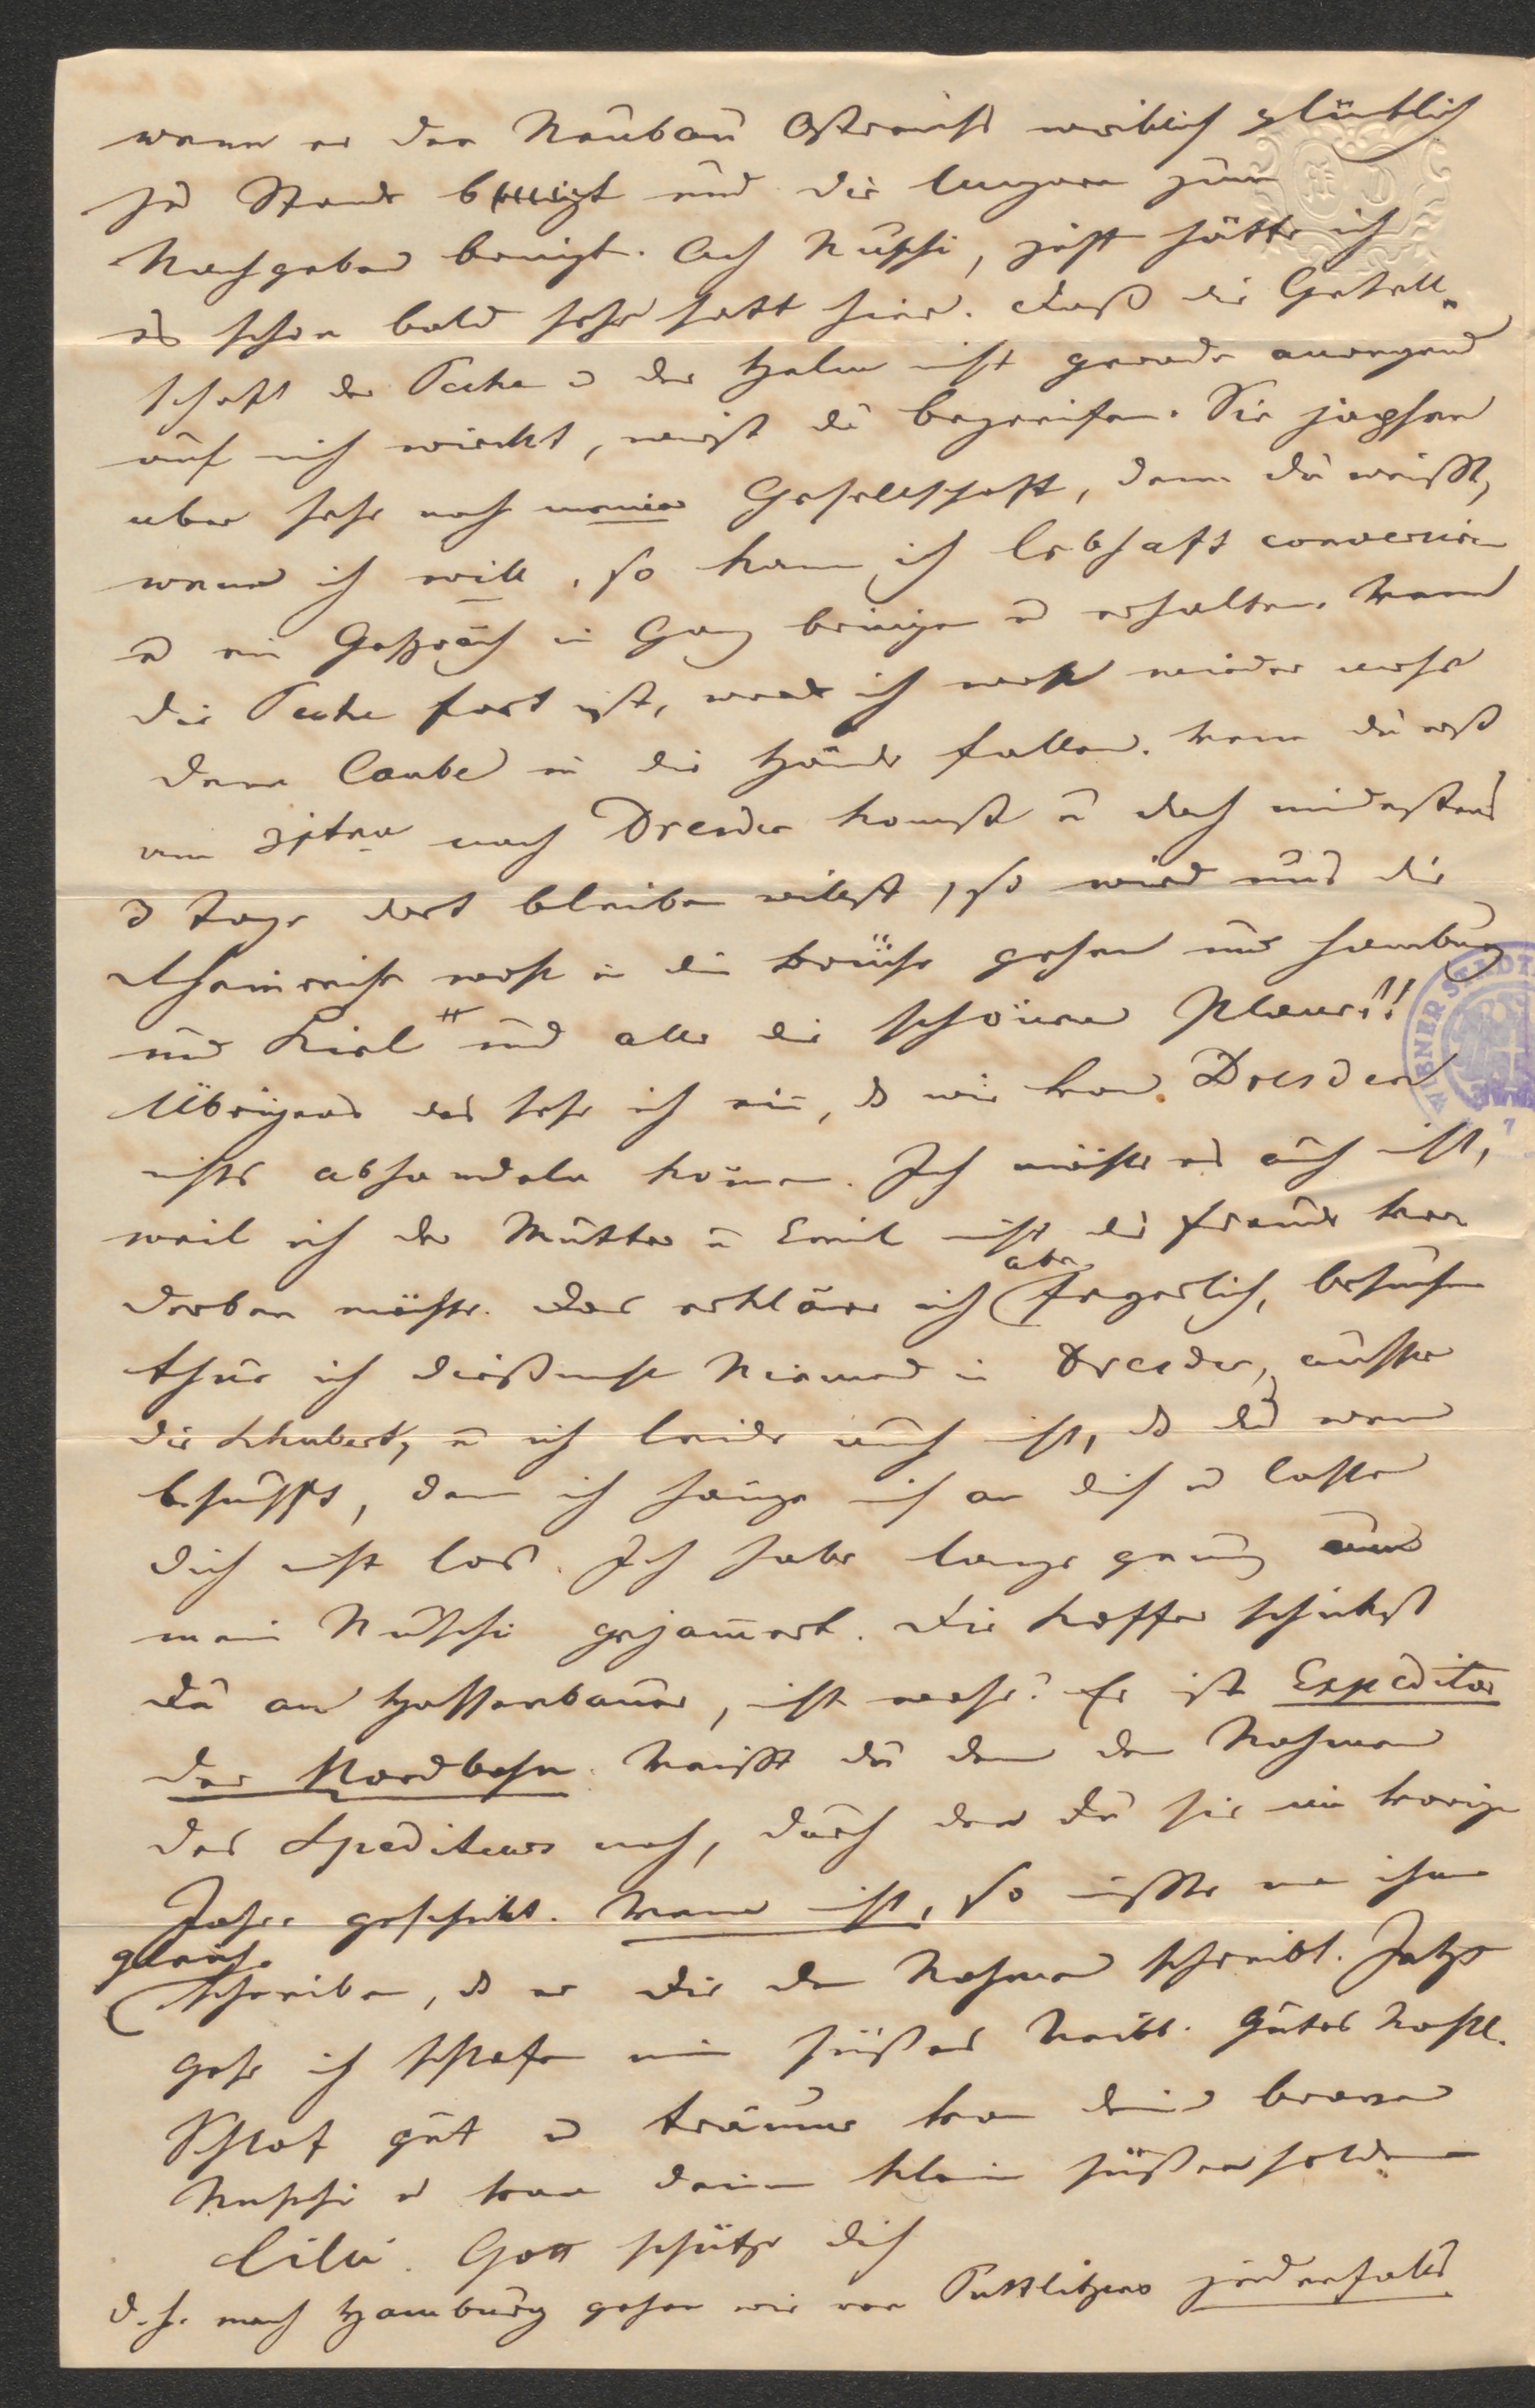 wenn er den Neubau Ostreichs wirklich glücklich
zu Stande bringt und die Ungarn zum
Nachgeben bringt. Ach Nuschi, jetzt hätte ich
es schon bald sehr satt hier. Daß die Gesell„
schaft der Peche u der Halm nicht gerade anregend
auf mich wirckt, wirst du begreifen. Sie
aber sehr nach meiner Gesellschaft, denn du weißt,
wenn ich will, so kann ich lebhaft
u ein Gespräch in Gang bringen u erhalten. Wenn
die Peche fort ist, werde ich wohl wieder mehr
dem Laube in die Hände fallen. Wenn du erst
am 31ten nach Dresden komst u doch mindestens
3 Tage dort bleiben willst, so wird uns die
Rheinreise wohl in die Brüche gehen und Hamburg
und Kiel und alle die schönen Pläne!!
Übrigens das sehe ich ein, ds wir von Dresden
nichts abhandeln können. Ich möchte es auch nicht,
weil ich der Mutter u Emil nicht die Freude ver
derben möchte. Das erkläre ich aber feyerlich, besuchen
thue ich dießmal Niemand in Dresden, außer
die Schubert, u ich leide auch nicht, ds du wen
besuchst, denn ich hänge mich an dich u lasse
dich nicht los. Ich habe lange genug um
mein Nuschi gejam̄ert. Die Koffer schickst
du an Hassenbauer, nicht wahr? Er ist Expeditor
der Nordbahn. Weißt du denn den Nahmen
des Spediteurs noch, durch den du sie im vorigen
Jahre geschickt. Wenn nicht, so müßte man ihm
gleich schreiben, ds er dir den Nahmen schreibt. Jetzt
gehe ich schlafen mein süßes Weibl. Gute Nacht.
Schlaf gut u träume von dein braven
Nuschi u von deiner klein süßen holden
Cilli. Gott schütze dich
d. h. nach Hamburg gehen wir von Puttlitzens jedenfalls